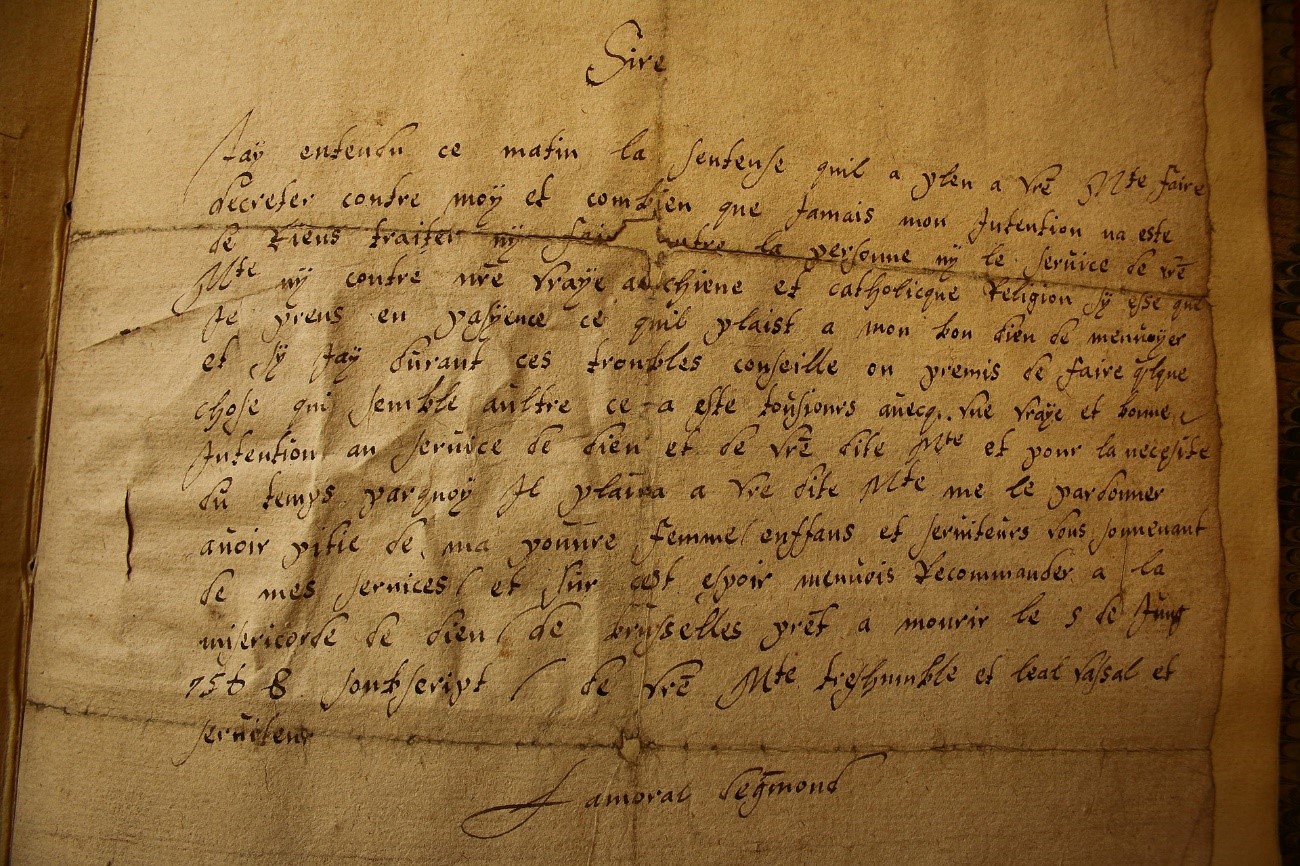 Sire
Jaÿ entendu ce matin la sentense quil a pleu a vr̄e Mte faire
decreter contre moÿ et combien que Jamais mon Intention na este
de Riens traiter nÿ fair contre la personne nÿ le seruice de vr̄e
Mte nÿ contre nr̄e vraÿe chiene et catholicque Religion sÿ esse que
Je prens en pasÿence ce quil plaist a mon bon dieu de menuoyer
et sÿ Jaÿ durant ces troubles conseille ou premis de faire qlque
chose qui semble aultre ce a este tousiours auecq. vne vraÿe et bonne
Intention au seruice de dieu et de vr̄e dite Mte et pour la necesite
du temps parquoy Il plaira a vre dite Mte me le pardonner
auoir pitie de ma pouure femme / enffans et seruiteurs vous souuenant
de mes seruices / et sur cest espoir menuois Recommander a la
misericorde de dieu / de brusselles pret a mourir le 5 de Jung
1568 soubscript / de vr̄e Mte treshumble et leal vassal et
seruiteur
Lamoral degmond